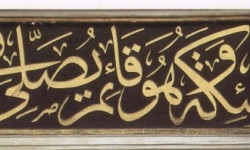 ئكة وَهُوَ قَائِمٌ يُصَلِّى